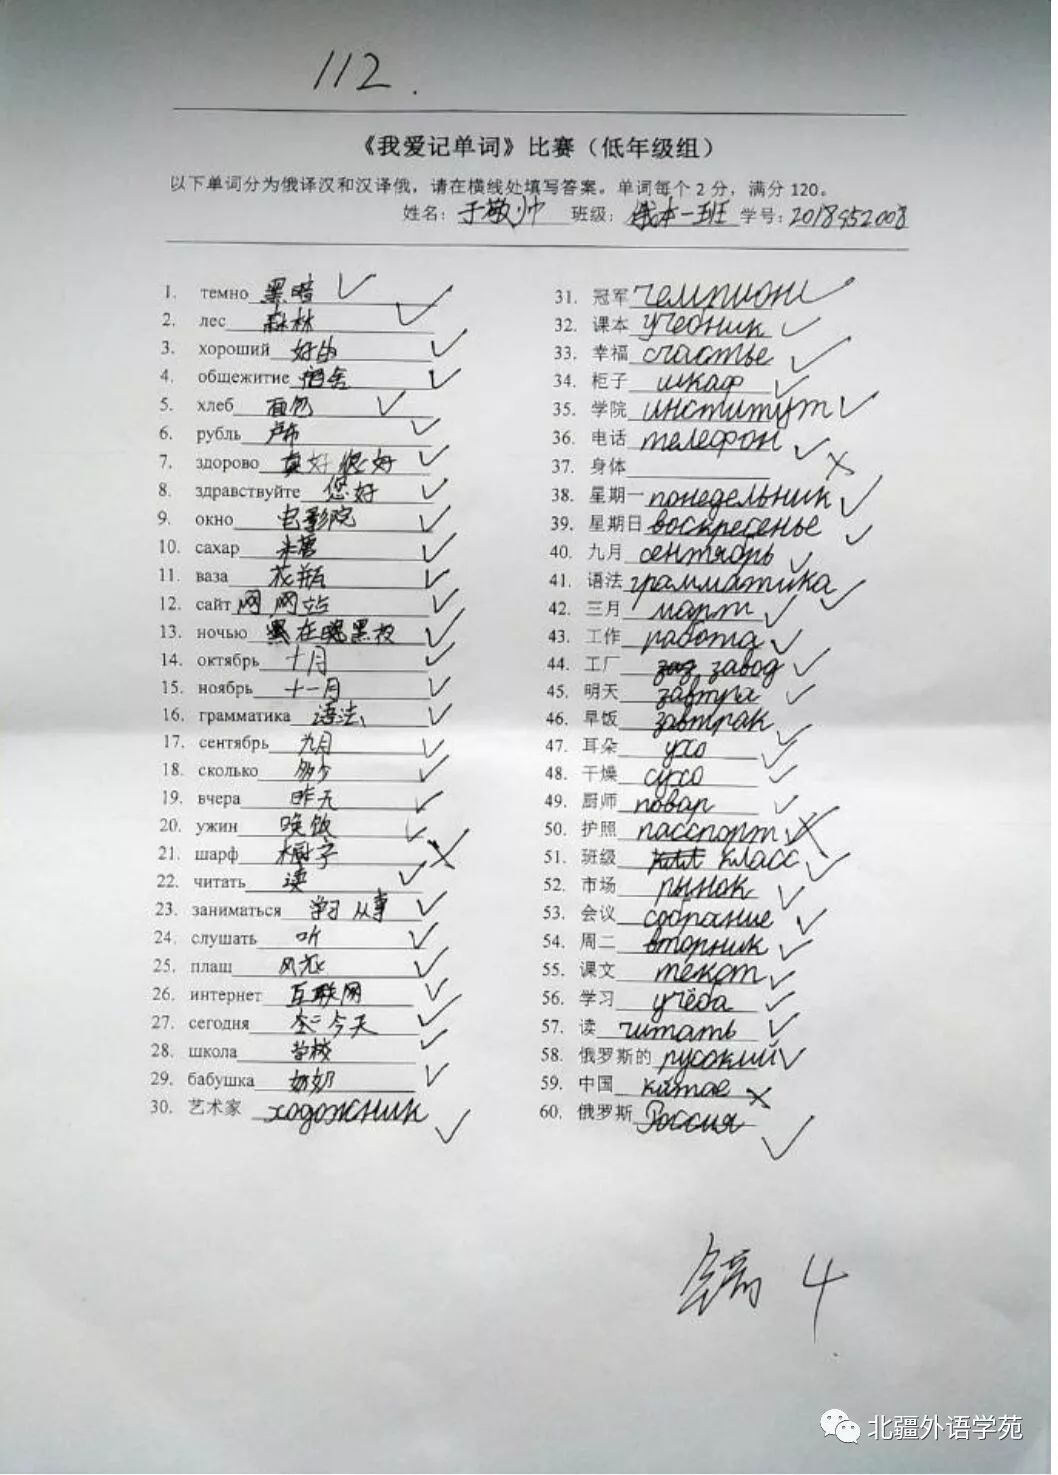 112.
《我爱记单词》比赛（低年级组）
以下单词分为俄译汉和汉译俄，请在横线处填写答案。单词每个2分，满分120。
姓名：于敬帅 班级：俄本一班 学号：2018952008
1. темно 黑暗
2. лес 森林
3. хороший 好的
4. общежитие 宿舍
5. хлеб 面包
6. рубль 卢布
7. здорово 真好 很好
8. здравствуйте 您好
9. окно 电影院
10. сахар
11. ваза 花瓶
12. сайт 网 网站
13. ночью 在黑夜
14. октябрь 十月
15. ноябрь 十一月
16. грамматика 语法
17. сентябрь 九月
18. сколько 多少
19. вчера 昨天
20. ужин 晚饭
21. шарф 橱子
22. читать 读
23. заниматься 学习 从事
24. слушать 听
25. плащ 风衣
26. интернет 互联网
27. сегодня 今天
28. школа 学校
29. бабушка 奶奶
30. 艺术家 ходожник
31. 冠军 чемпион
32. 课本 учебник
33. 幸福 счастье
34. 柜子 шкаф
35. 学院 институт
36. 电话 телефон
37. 身体
38. 星期一 понедельник
39. 星期日 воскресенье
40. 九月 сентябрь
41. 语法 грамматика
42. 三月 март
43. 工作 работа
44. 工厂 завод
45. 明天 завтра
46. 早饭 завтрак
47. 耳朵 ухо
48. 干燥 сухо
49. 厨师 повар
50. 护照 пасспорт
51. 班级 класс
52. 市场 рынок
53. 会议 собрание
54. 周二 вторник
55. 课文 текст
56. 学习 учёба
57. 读 читать
58. 俄罗斯的 русский
59. 中国 китае
60. 俄罗斯 Россия
4
北疆外语学苑